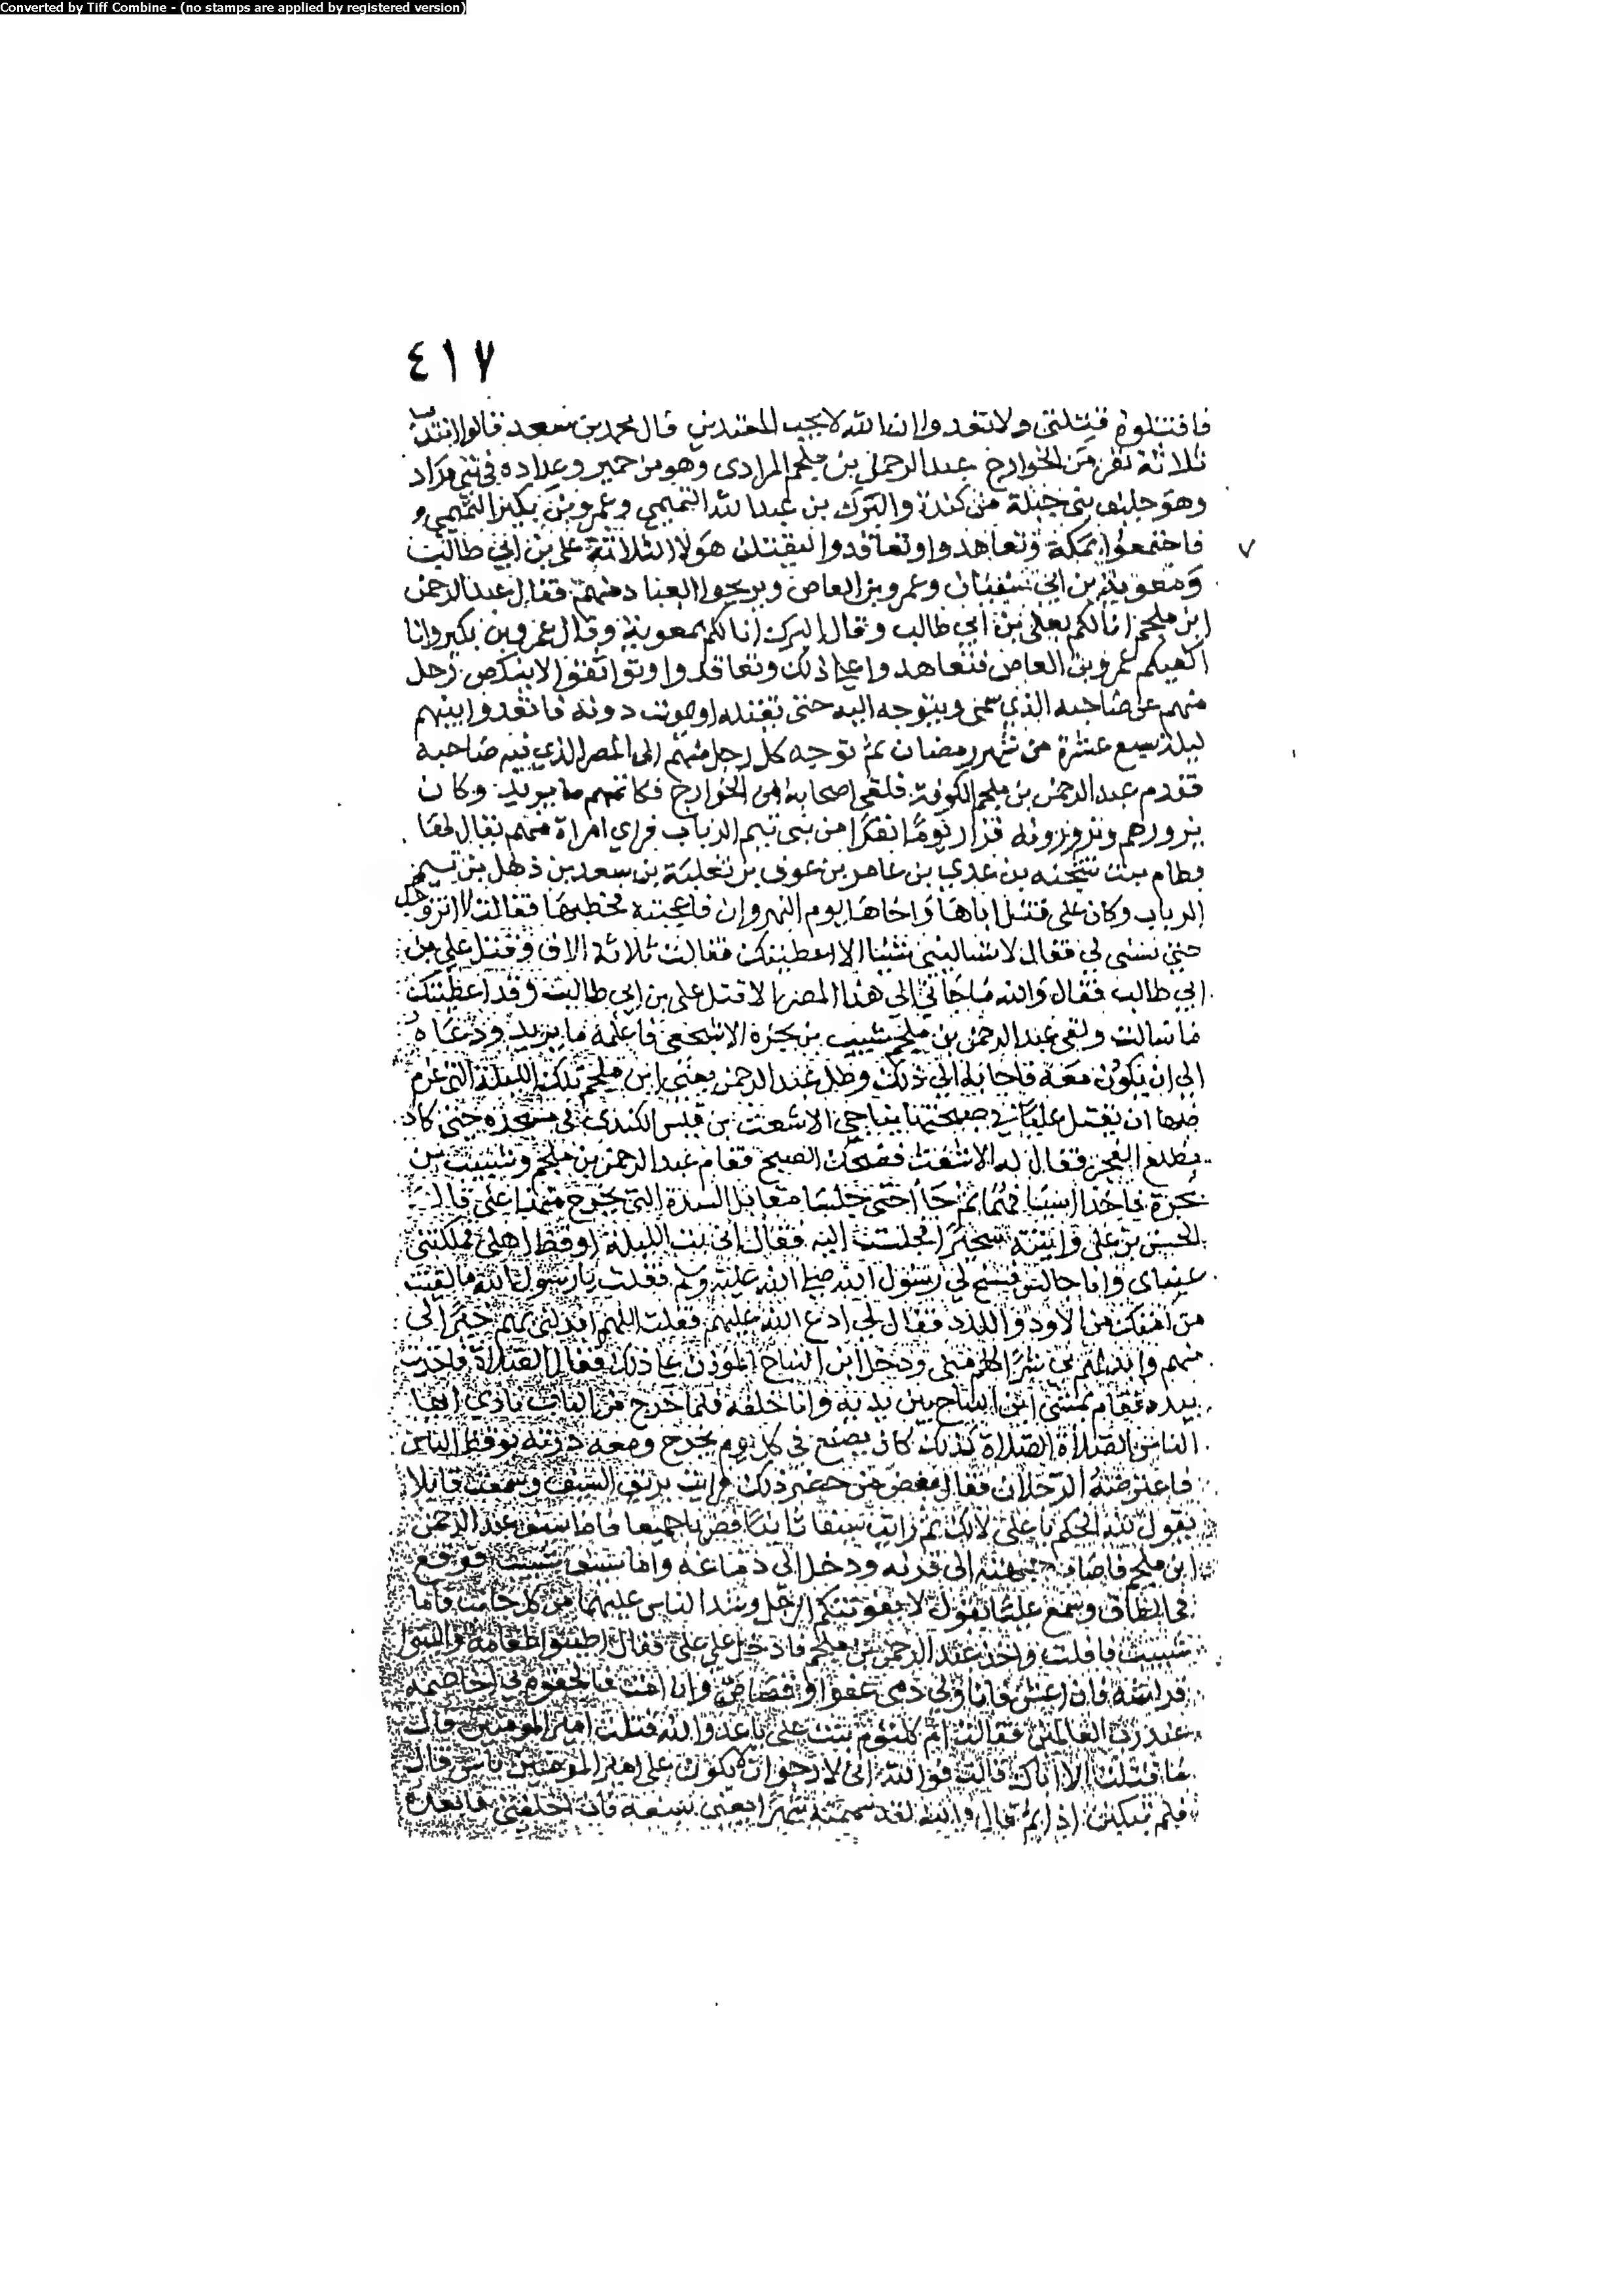 Converted by Tiff Combine - (no stamps are applied by registered version)
٤١٧
فاقتلوه قتلتي ولا تعتدوا ان الله لا يحب المعتدين قال محمد بن سعد قالوا انتدب
ثلاثة نفر من الخوارج عبد الرحمن بن ملجم المرادي وهو من حمير وعداده في بني مراد
وهو حليف بني جبلة من كندة والبرك بن عبد الله التميمي وعمرو بن بكير التميمي و
فاجتمعوا بمكة وتعاهدوا وتعاقدوا ليقتلن هولا الثلاثة علي بن ابي طالب
ومعوية بن ابي سفيان وعمرو بن العاص ويريحوا العباد منهم فقال عبد الرحمن
ابن ملجم انا لكم بعلي بن ابي طالب وقال البرك انا لكم بمعوية وقال عمرو بن بكير وانا
اكفيكم عمرو بن العاص فتعاهدوا علي ذلك وتعاقدوا وتواثقوا لا ينكص رجل
منهم عن صاحبه الذي سمى ويتوجه اليه حتى يقتله او يموت دونه فاتعدوا بينهم
ليلة سبع عشرة من شهر رمضان ثم توجه كل رجل منهم الى المصر الذي فيه صاحبه
فقدم عبد الرحمن بن ملجم الكوفة فلقي اصحابه من الخوارج فكاتمهم ما يريد وكان
يزورهم ويزورونه فزار يوما نفرا من بني تيم الرباب فراي امراة منهم يقال لها
قطام بنت شجنه بن عدي بن عامر بن عوف بن ثعلبة بن سعد بن ذهل بن تيم
الرباب وكان علي قتل اباها واخاها يوم النهروان فاعجبته فخطبها فقالت لا اتزوجك
حتى تسمي لي فقال لا تساليني شيئا الا اعطيتك فقالت ثلاثة الاف وقتل علي بن
ابي طالب فقال والله ما جا بي الي هذا المصر الا قتل علي بن ابي طالب وقد اعطيتك
ما سالت ولقي عبد الرحمن بن ملجم شبيب بن بجرة الاشجعي فاعلمه ما يريد ودعاه
الى ان يكون معه فاجابه الي ذلك وظل عبد الرحمن يعني ابن ملجم تلك الليلة التي عزم
فيها ان يقتل عليا في صبيحتها يناجي الاشعث بن قيس الكندي في مسجده حتى كاد
يطلع الفجر فقال له الاشعث فضحك الصبح فقام عبد الرحمن بن ملجم وشبيب بن
بجرة فاخذا اسيافهما ثم جاا حتى جلسا مقابل السدة التي يخرج منها علي قال
الحسن بن علي واتيته سحيرا فجلست اليه فقال اني بت الليلة اوقظ اهلي فملكتني
عيناى وانا جالس فسنح لي رسول الله صلى الله عليه وسلم فقلت يا رسول الله ما لقيت
من امتك من الاود واللدد فقال لي ادع الله عليهم فقلت اللهم ابدلني بهم خيرا لي
منهم وابدلهم بي شرا لهم مني ودخل ابن النباح الموذن علي ذلك فقال الصلاة فاخذت
بيده فقام يمشي ابن النباح بين يديه وانا خلفه فلما خرج من الباب نادى ايها
الناس الصلاة الصلاة كذلك كان يصنع في كل يوم يخرج ومعه درته يوقظ الناس
فاعترضه الرجلان فقال بعض من حضر ذلك فرايت بريق السيف وسمعت قايلا
يقول لله الحكم يا علي لا لك ثم رايت سيفا ثانيا فضربا جميعا فاما سيف عبد الرحمن
ابن ملجم فاصاب جبهته الى قرنه ودخل الى دماغه واما سيف شبيب فوقع
في الطاق وسمع عليا يقول لا يفوتنكم الرجل وشد الناس عليهما من كل جانب فاما
شبيب فافلت واخذ عبد الرحمن بن ملجم فادخل على علي فقال اطيبوا طعامه والينوا
فراشه فان اعش فانا ولي دمي عفوا او قصاص وان امت فالحقوه بي اخاصمه
عند رب العالمين فقالت ام كلثوم بنت علي يا عدو الله قتلت امير المومنين قال
ما قتلت الا اباك قالت فوالله اني لا رجو ان لا يكون على امير المومنين باس قال
فلم تبكين اذا ثم قال والله لقد سممته شهرا يعني سيفه فان اخلفني فابعده